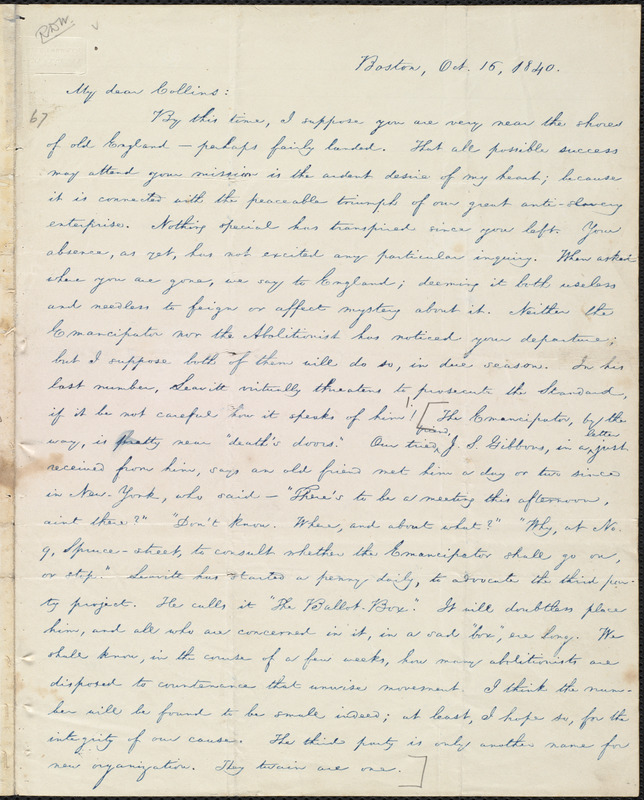 RDW.
Boston, Oct. 16, 1840.
My dear Collins:
67
By this time, I suppose you are very near the shores
of old England — perhaps fairly landed. That all possible success
may attend your mission is the ardent desire of my heart; because
it is connected with the peaceable triumph of our great anti-slavery
enterprise. Nothing special has transpired since you left. Your
absence, as yet, has not excited any particular inquiry. When asked
where you are gone, we say to England; deeming it both useless
and needless to feign or affect mystery about it. Neither the
Emancipator nor the Abolitionist has noticed your departure;
but I suppose both of them will do so, in due season. In his
last number, Leavitt virtually threatens to prosecute the Standard,
if it be not careful how it speaks of him!! [The Emancipator, by the
way, is pretty near "death's doors." Our tried friend, J. S. Gibbons, in a letter just
received from him, says an old friend met him a day or two since
in New-York, who said — "There's to be a meeting this afternoon,
aint there?" "Don't know. Where, and about what?" "Why, at No.
9, Spruce-street, to consult whether the Emancipator shall go on,
or stop." Leavitt has started a penny daily, to advocate the third par-
ty project. He calls it "The Ballot-Box." It will doubtless place
him, and all who are concerned in it, in a sad "box", ere long. We
shall know, in the course of a few weeks, how many abolitionists are
disposed to countenance that unwise movement. I think the num-
ber will be found to be small indeed; at least, I hope so, for the
integrity of our cause. The third party is only another name for
new organization. They twain are one.]